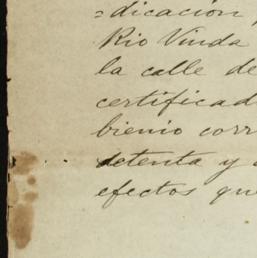 =dicación,
Rio Vinda
la calle de
certificad
bienio corr
detenta y
efectos que